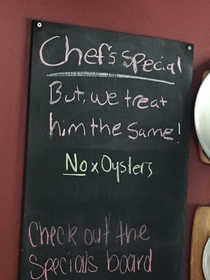 Chef's special
But, we treat
him the same!
No x Oysters
Check out the
Specials board